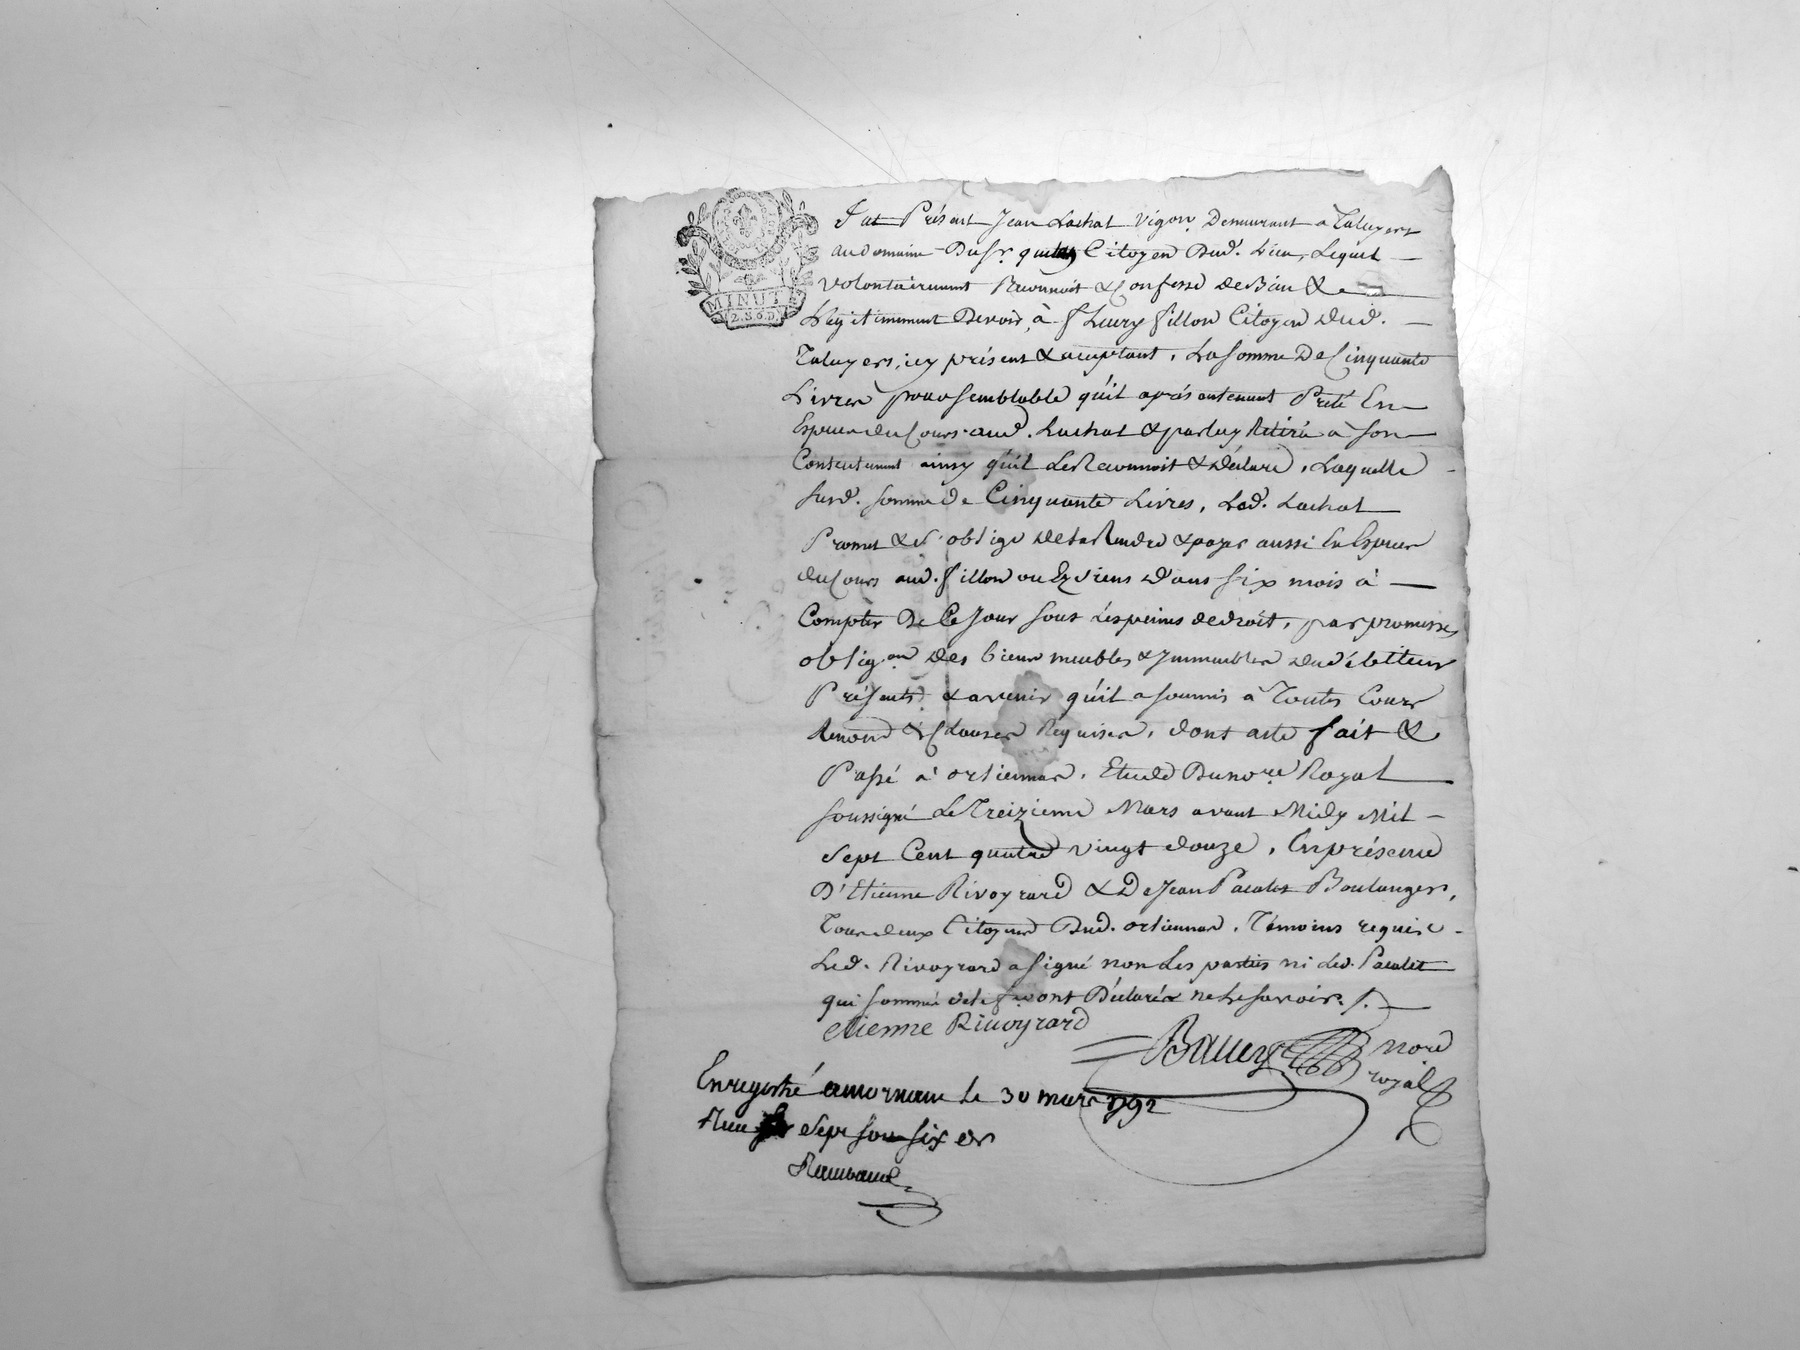 MINUTE
2.S.6.D.
Fut Présent Jean Lachat Vigon. Demeurant a Taluyers
au domaine Du Sr. Citoyen Dud. Lieu, Lequel
volontairement Reconnoit & Confesse de Bien &
Légitimement Devoir, à fleury fillon Citoyen dud.
Taluyers, icy présent & acceptant, La somme De Cinquante
Livres pour semblable qu'il a présentement Preté En
Especes du Cours aud. Lachat & par luy Retiré à son
Contentement ainsy qu'il Le Reconnoit & Déclare, Laquelle
susd. somme de Cinquante Livres, Led. Lachat
Promet & s'oblige de la Rendre & payer aussi En Especes
du Cours aud. fillon ou Es siens dans six mois à
Compter De Ce Jour sous Les peines de droit, par promesses
oblig.on des biens meubles & Immeubles du débitteur
Présents & avenir qu'il a soumis à Toutes Cours
Renond & Clauses Requises, dont acte fait &
Passé a orliennas, Etude Du no.re Royal
soussigné Le Treizieme Mars avant Midy Mil
Sept Cent quatre vingt douze, En présence
D'Etienne Rivoyrard & De Jean Pacalet Boulanger,
Tous deux Citoyens Dud. orliennas, Témoins requis
Led. Rivoyrard a signé non Les parties ni Led. Pacalet
qui sommé de le f. ont Déclarés ne Le savoir. /.
etienne Rivoyrard
nore
royal
Enregistré a mornant le 30 mars 1792
Reçu sept sous six drs